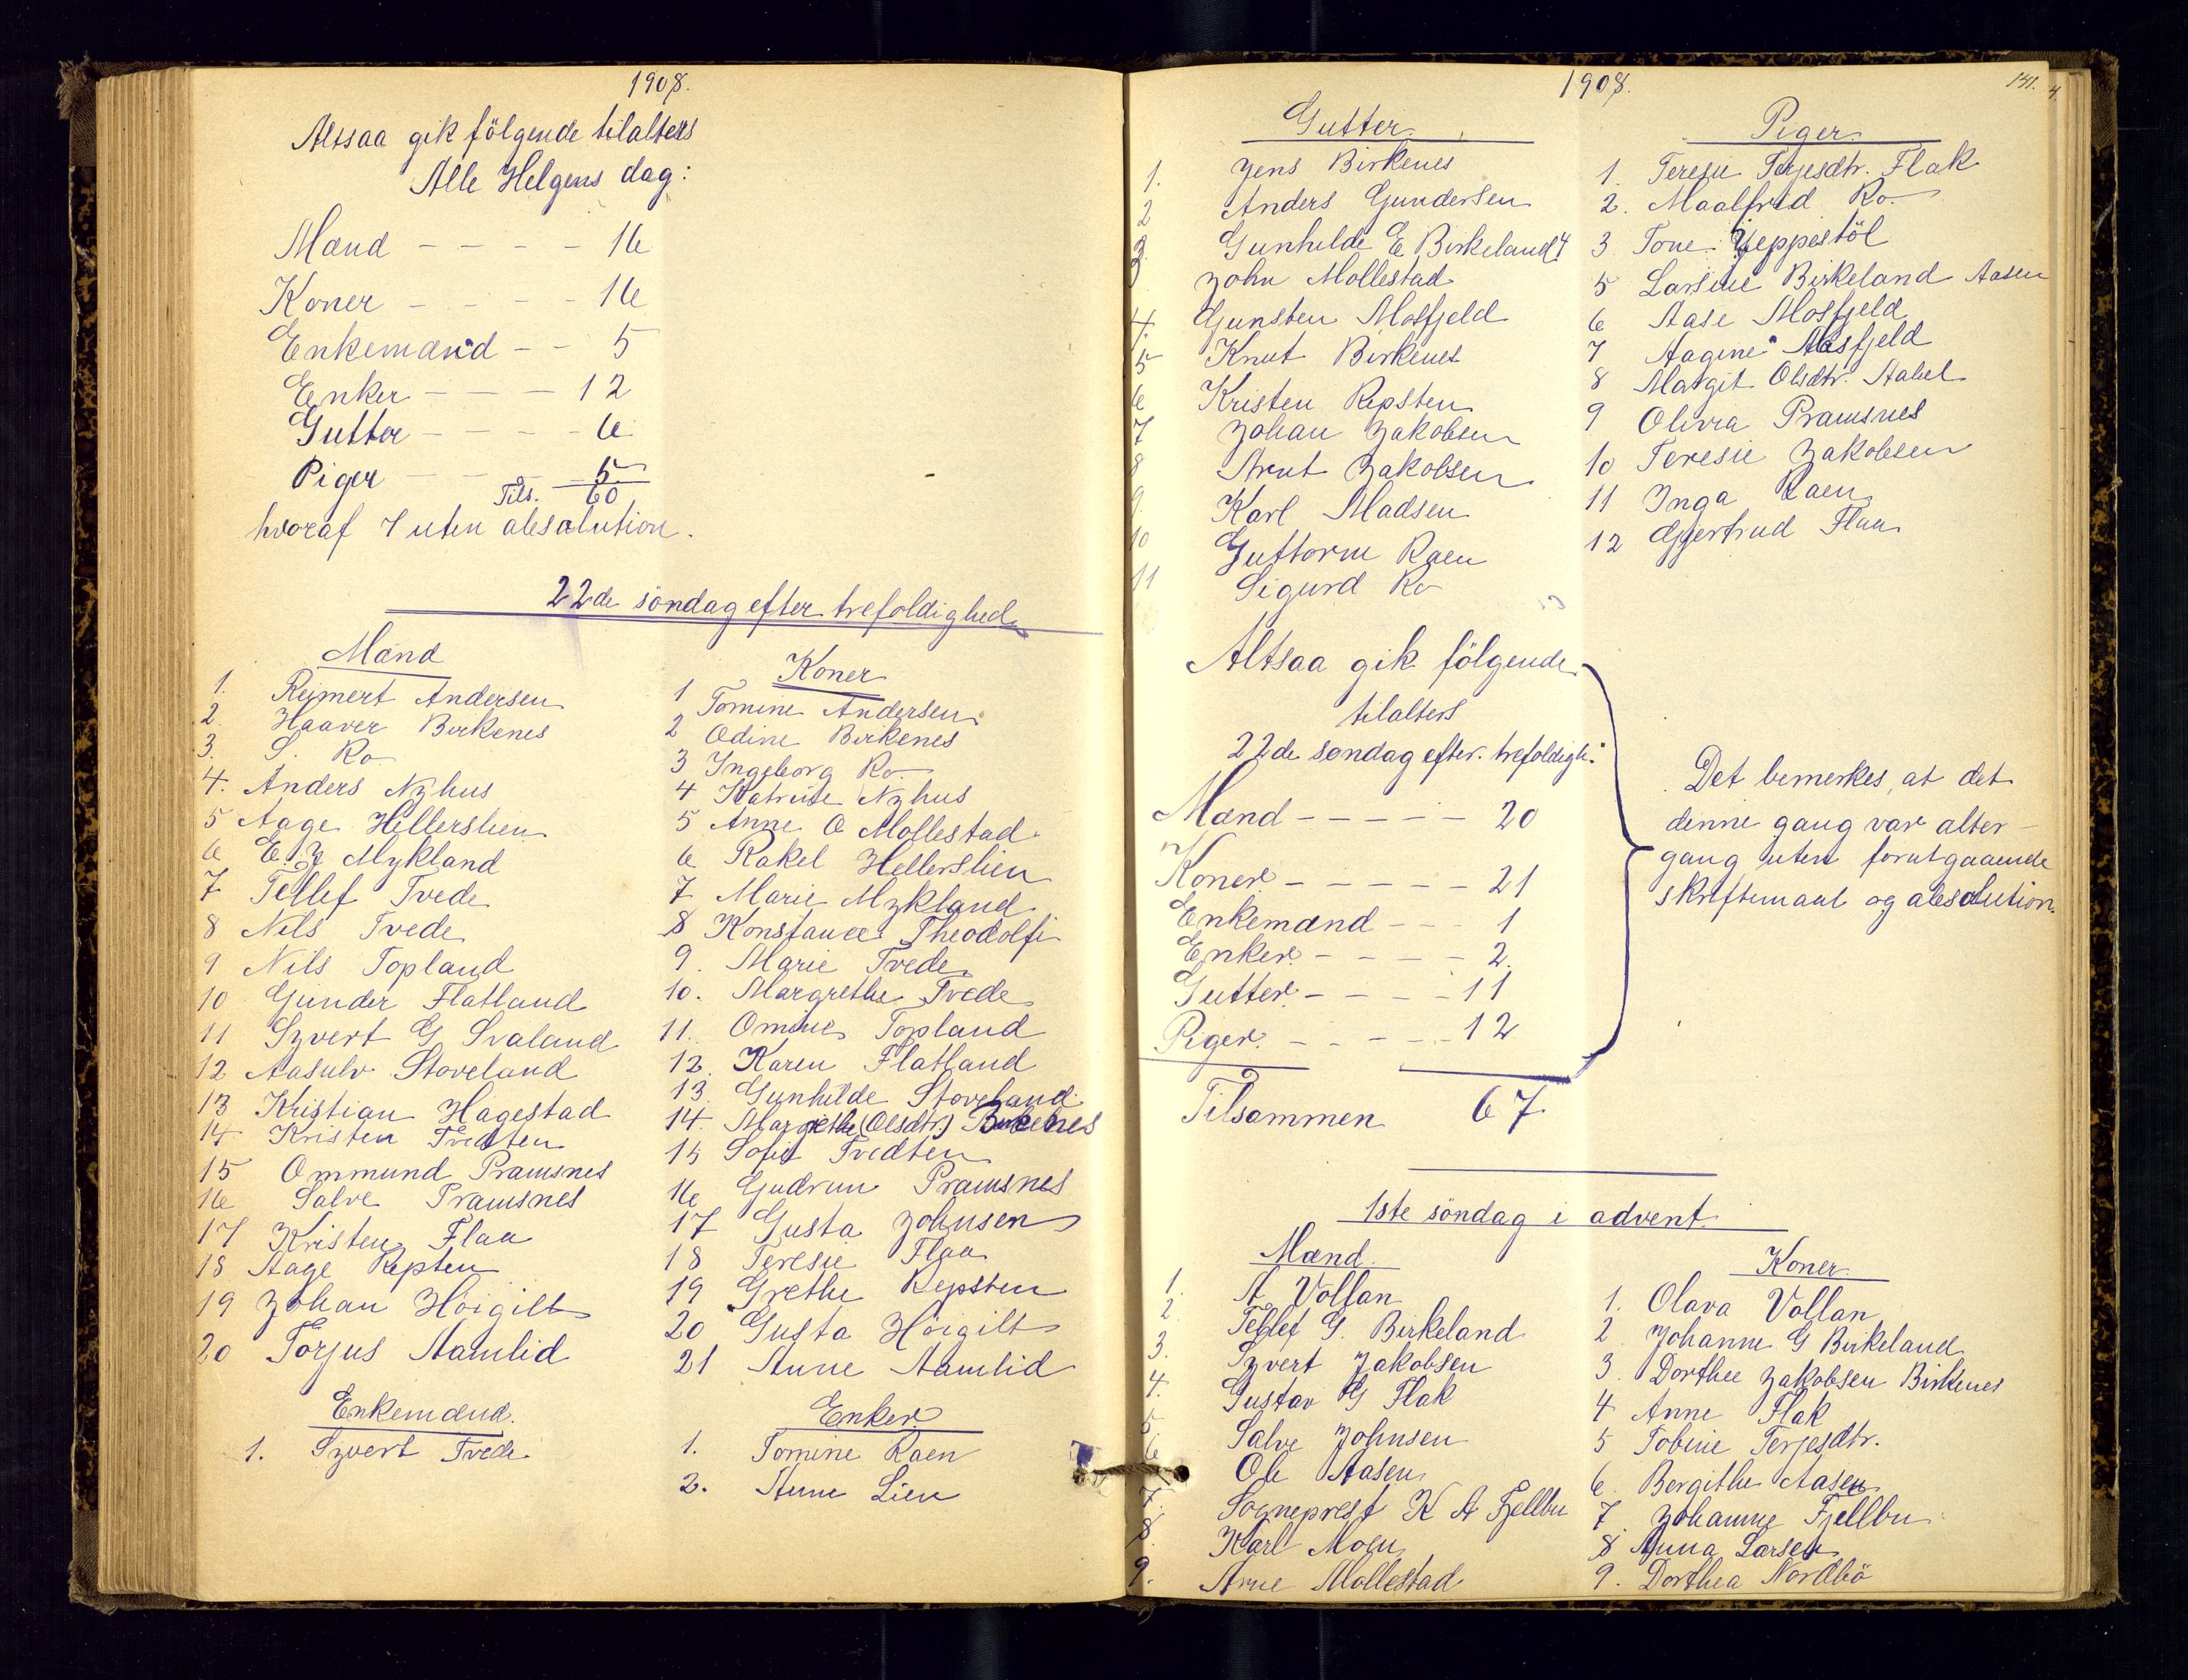 1908.
Altsaa gik følgende tilalters
Alle Helgens dag:
Mænd - - - - 16
Koner - - - - 16
Enkemænd - - 5
Enker - - - 12
Gutter - - - - 6
Piger - - - 5
Tils. 60
hvoraf 7 uten absolution.
22de söndag efter trefoldighed
Mænd
1. Reimert Andersen
2. Haaver Birkenes
3. S. Ro
4. Anders Nyhus
5 Aage Hillerslien
6 E. J Mykland
7 Tellef Tvede
8 Nils Tvede
9 Nils Topland
10 Gunder Flatland
11 Syvert G Svaland
12 Aasulv Stoveland
13 Kristian Hagestad
14 Kristen Tvedten
15 Ommund Pramsnes
16 Salve Pramsnes
17 Kristen Flaa
18 Aage Repsten
19 Johan Höigilt
20 Torjus Aamlid
Enkemænd.
1. Syvert Tvede
Koner
1 Tomine Andersen
2 Odine Birkenes
3 Ingeborg Ro.
4 Katrine Nyhus
5 Anne O Mollestad
6 Rakel Hellerslien
7 Marie Mykland
8 Konstance Theodolfi
9. Marie Tvede
10. Margrethe Tvede
11. Omine Topland
12. Karen Flatland
13. Gunhilde Stoveland
14. Margrethe (Olsdtr.) Birkenes
15 Sofie Tvedten
16 Gudrun Pramsnes
17 Gusta Johnsen
18 Teresie Flaa
19 Grethe Repsten
20 Gusta Höigilt
21 Anne Aamlid
Enker
1. Tomine Raen
2. Anne Lien
1908.
141.
4.
Gutter.
1. Jens Birkenes
2 Anders Gundersen
3. Gunhilde E Birkeland 4
3 John Mollestad
4. Gunsten Mosfjeld
5 Knut Birkenes
6 Kristen Repsten
7 Johan Jakobsen
8 Arnt Jakobsen
9. Karl Madsen
10 Guttorm Raen
11 Sigurd Ro
Piger.
1. Teresie Terjesdtr. Flak
2. Maalfrid Ro
3 Tone Jeppestöl
5 Larsine Birkeland Aasen
6 Aase Mosfjeld
7 Aagine Mosfjeld
8 Margit Olsdtr. Stabel
9 Olivia Pramsnes
10 Teresie Jakobsen
11 Inga Raen
12 Gjertrud Flaa
Altsaa gik følgende
tilalters
22de søndag efter. trefoldigh:
Mænd - - - - - 20
Koner - - - - - 21
Enkemænd - - - 1
Enker - - - - - 2.
Gutter - - - - 11
Piger. - - - - - 12
Tilsammen 67
Det bemerkes, at det
denne gang var alter-
gang uten forutgaaende
skriftemaal og absolution.
1ste söndag i advent
Mænd
1. A Vollan
2. Tellef G. Birkeland
3. Syvert Jakobsen
4. Gustav G Flak
5 Salve Johnsen
6 Ole Aasen
7. Sogneprest K A Fjellbu
8. Karl Moen
9. Arne Mollestad
Koner.
1. Olava Vollan
2 Johanne G Birkeland
3. Dorthee Jakobsen Birkenes
4 Anne Flak
5 Tobine Terjesdtr.
6. Bergithe Aasen
7. Johanne Fjellbu
8 Anna Larsen
9. Dorthea Nordbö